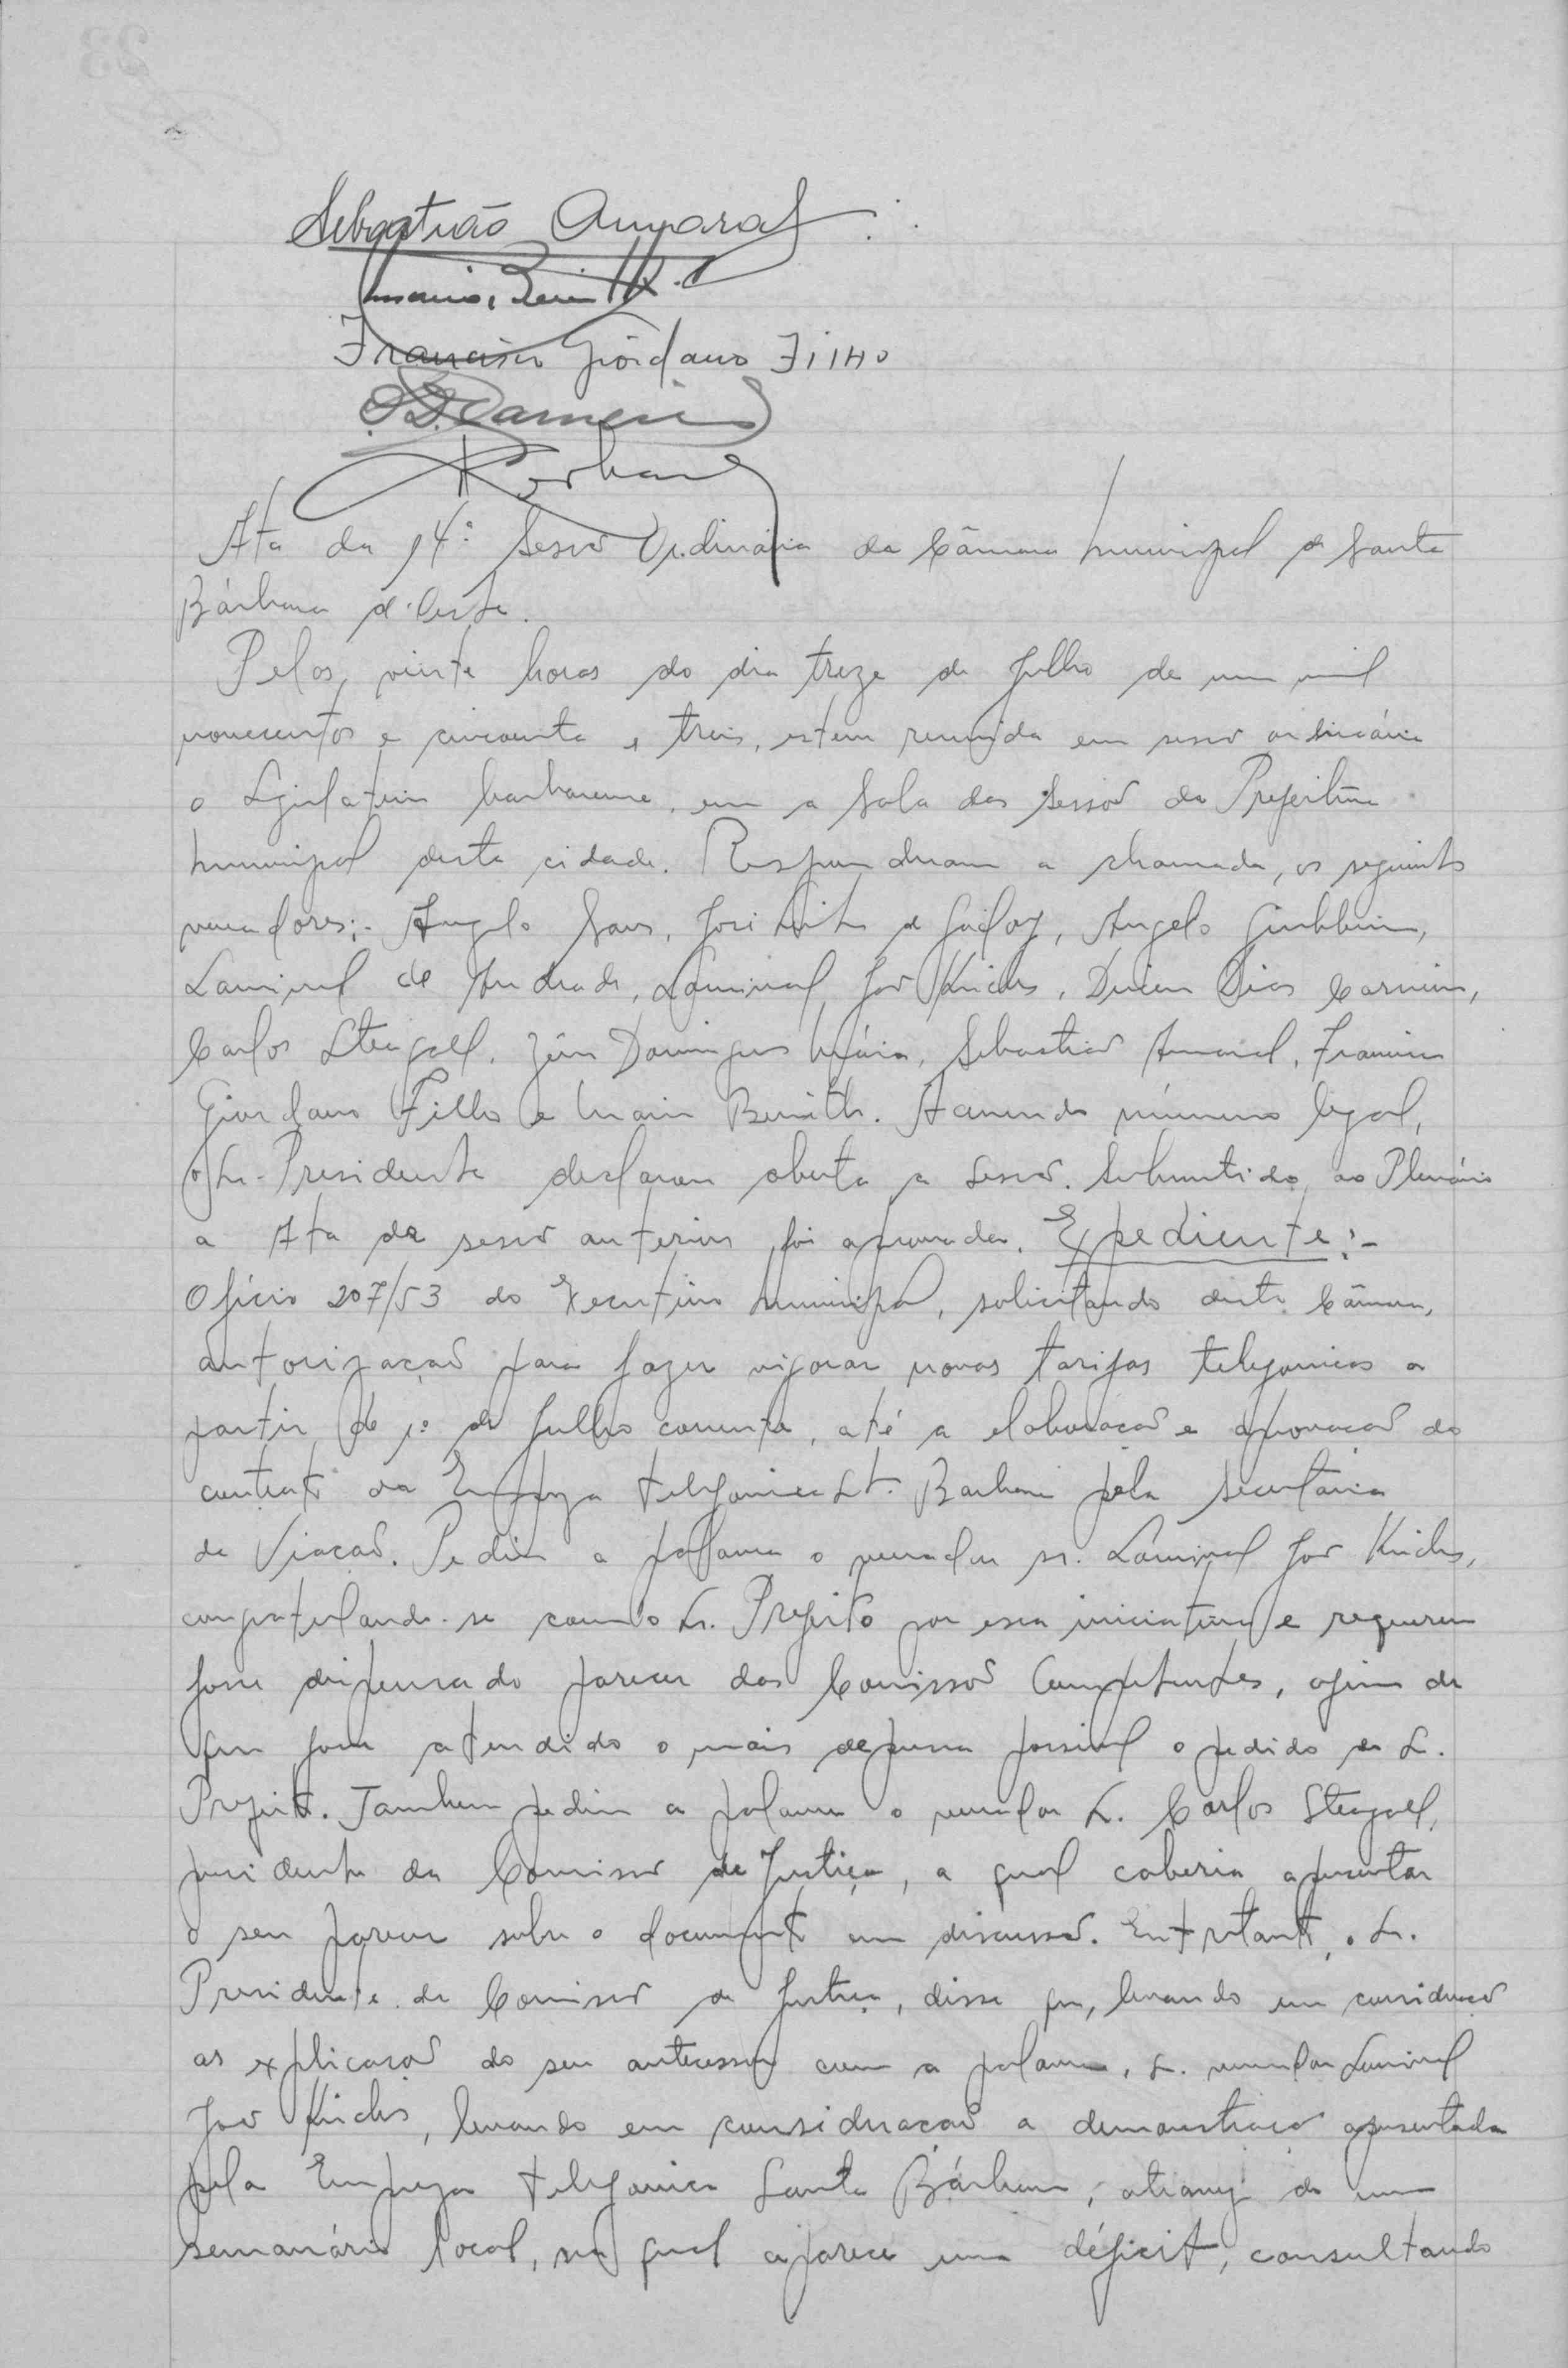 Sebastião Amaral
Mario Benith
Francisco Giordano Filho
D. D. Carneiro
Ata da 14ª Sessão Ordinária da Câmara Municipal de Santa
Bárbara d'Oeste.
Pelas vinte horas do dia treze de Julho de um mil
novecentos e cincoenta e treis, esteve reunida em sessão ordinária
o Legislativo barbarense, em a Sala das Sessões da Prefeitura
Municipal desta cidade. Responderam a chamada, os seguintes
vereadores:- Angelo Sans, José de Godoy, Angelo Giubbina,
Laminal de Andrade, Laminal José Kirche, Dirceu Dias Carneiro,
Carlos Steagall, Domingues Maria, Sebastião Amaral, Francisco
Giordano Filho e Mario Benith. Havendo número legal,
o Sr. Presidente declarou aberta a sessão. Submetida ao Plenário
a Ata da sessão anterior, foi aprovada. Expediente:-
Ofício 207/53 do Executivo Municipal, solicitando desta Câmara,
autorização para fazer vigorar novas tarifas telefonicas a
partir de 1º de Julho corrente, até a elaboração e aprovação do
contrato da Empreza Telefonica Sta. Barbara pela Secretaria
de Viação. Pediu a palavra o vereador sr. Laminal José Kirche,
congratulando-se com o Sr. Prefeito por essa iniciativa e requereu
fosse dispensado parecer das Comissões Competentes, afim de
que fosse atendido o mais depressa possivel o pedido do Sr.
Prefeito. Tambem pediu a palavra o vereador Sr. Carlos Steagall,
presidente da Comissão de Justiça, a qual caberia apresentar
o seu parecer sobre o documento em discussão. Entretanto, o Sr.
Presidente da Comissão de Justiça, disse que, levando em consideração
as explicações do seu antecessor com a palavra, Sr. vereador Laminal
José Kirche, levando em consideração a demonstração apresentada
pela Empreza Telefonica Santa Bárbara, atravez de um
semanário local, na qual aparece um déficit, consultando